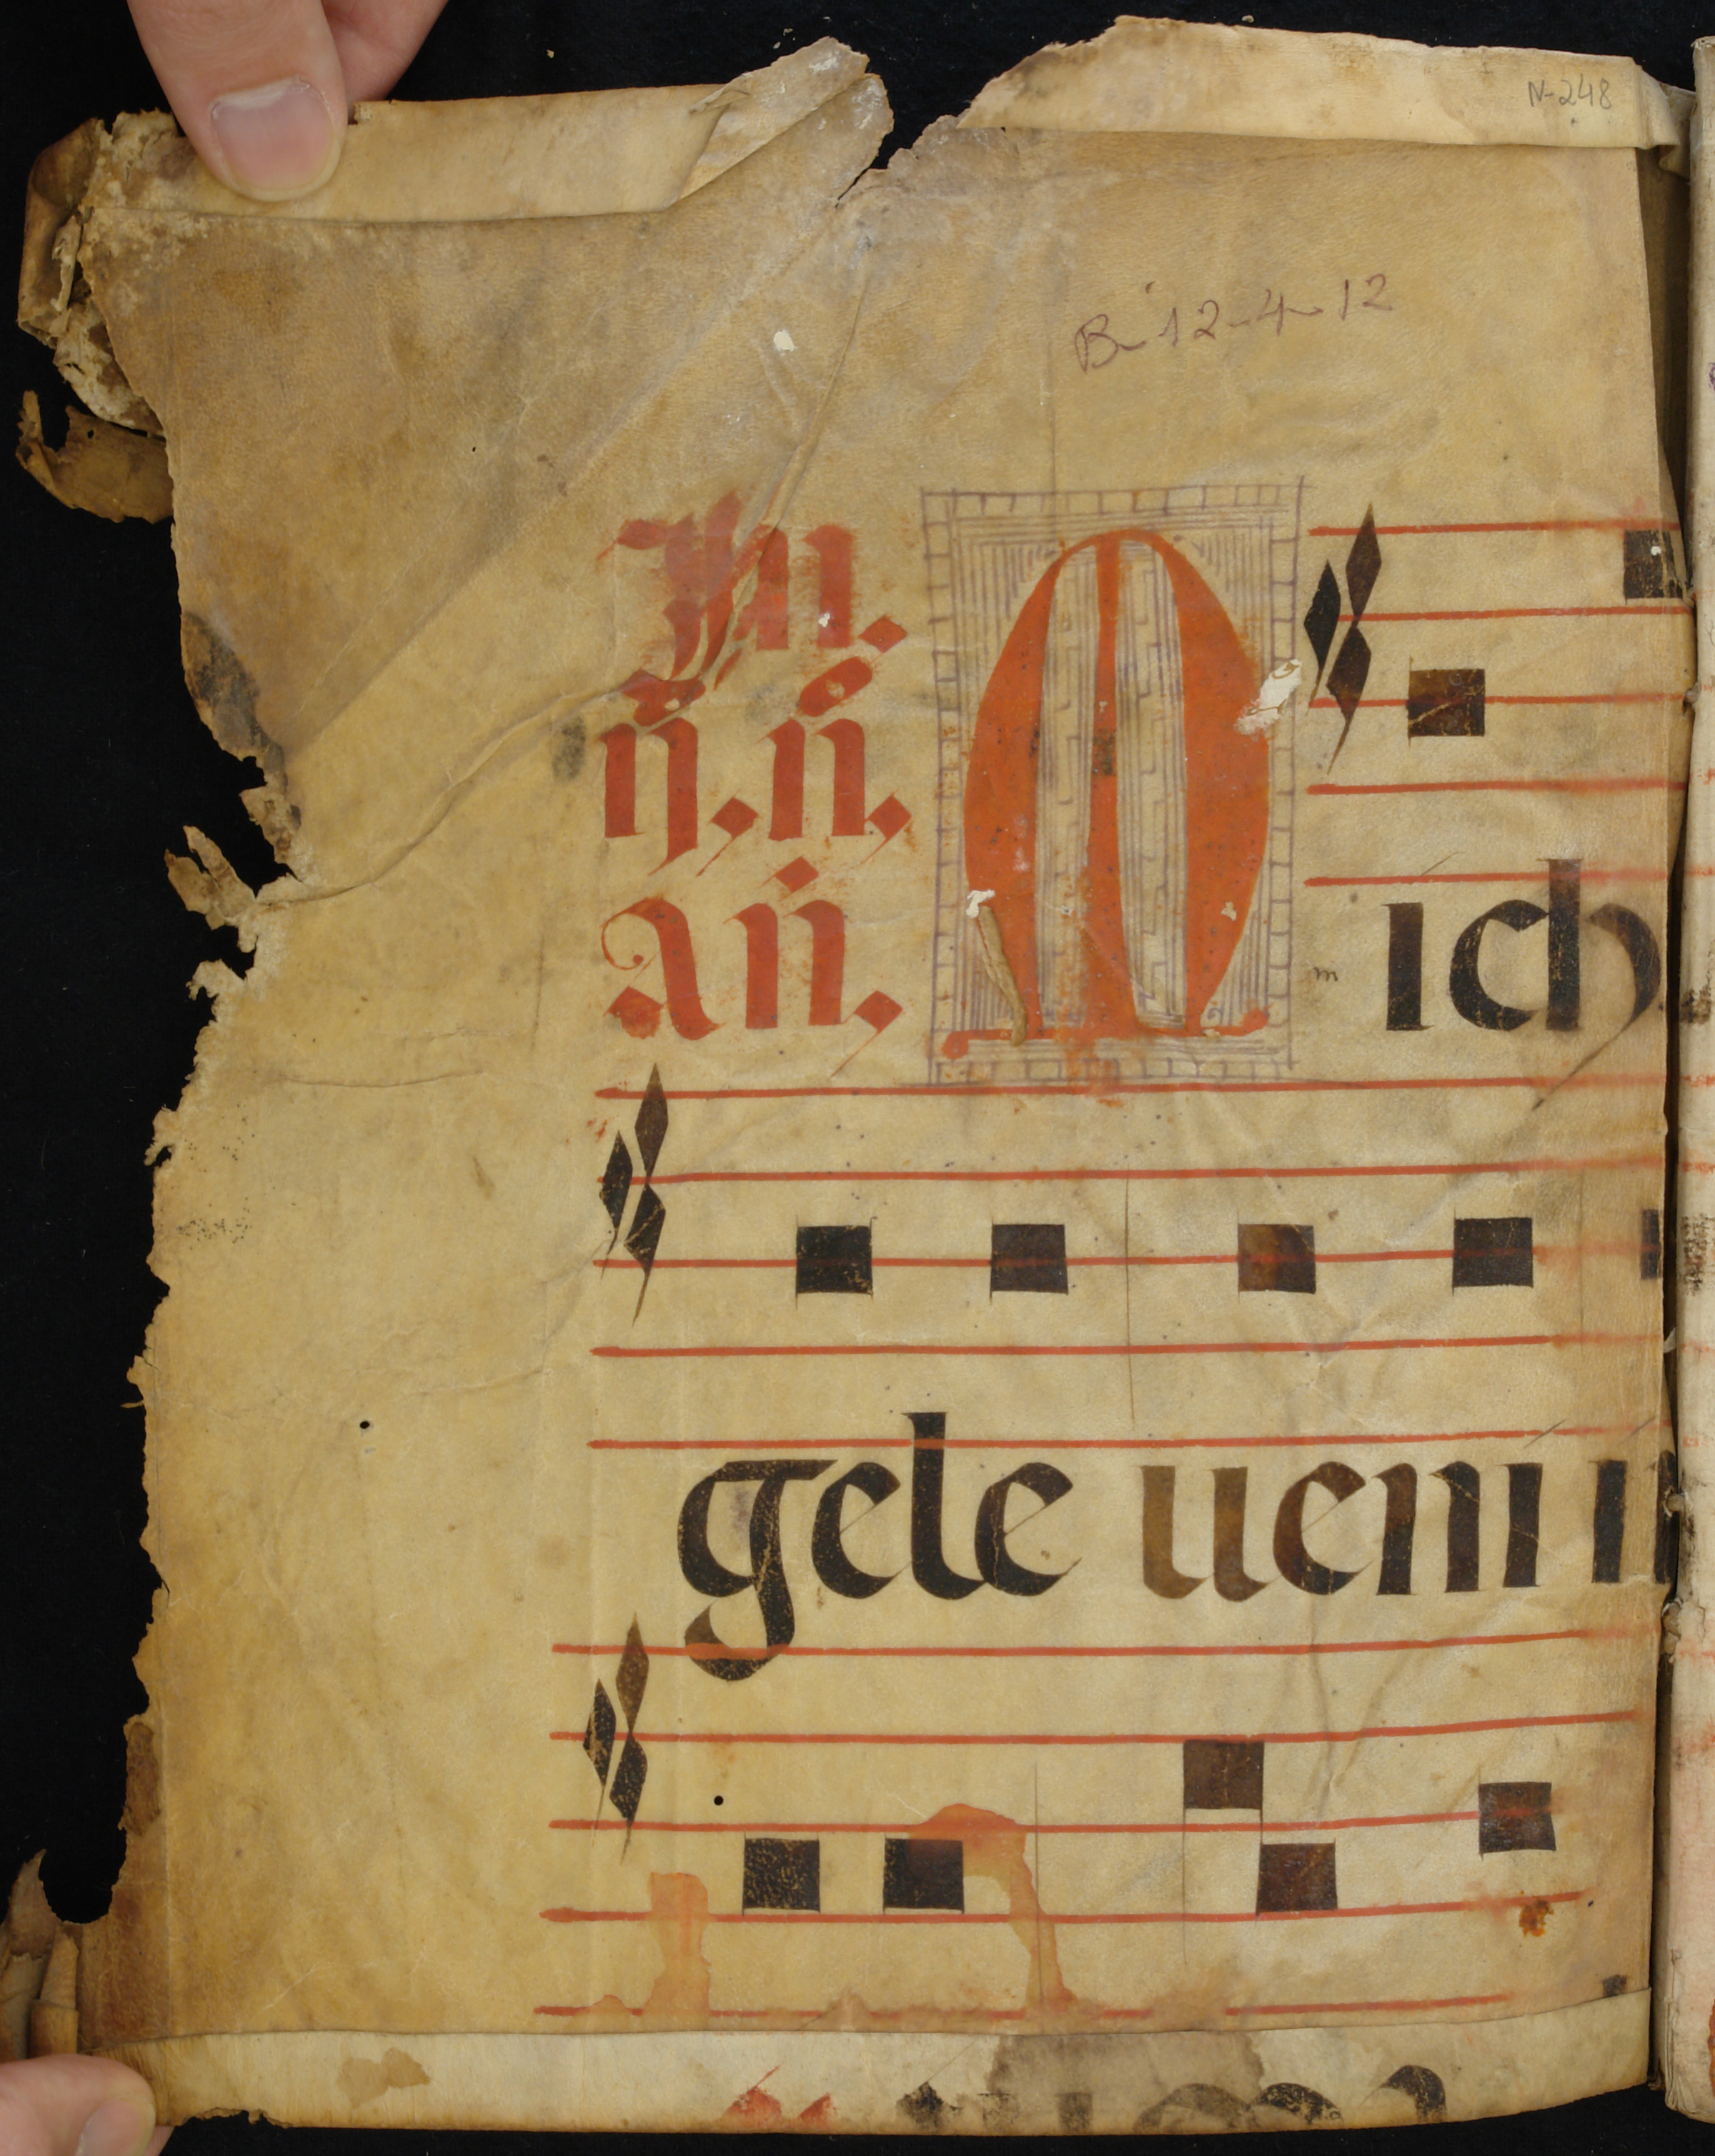 N-248
B-12-4-12
In.
ij. ń.
añ.
M
m
ich
gele ueni